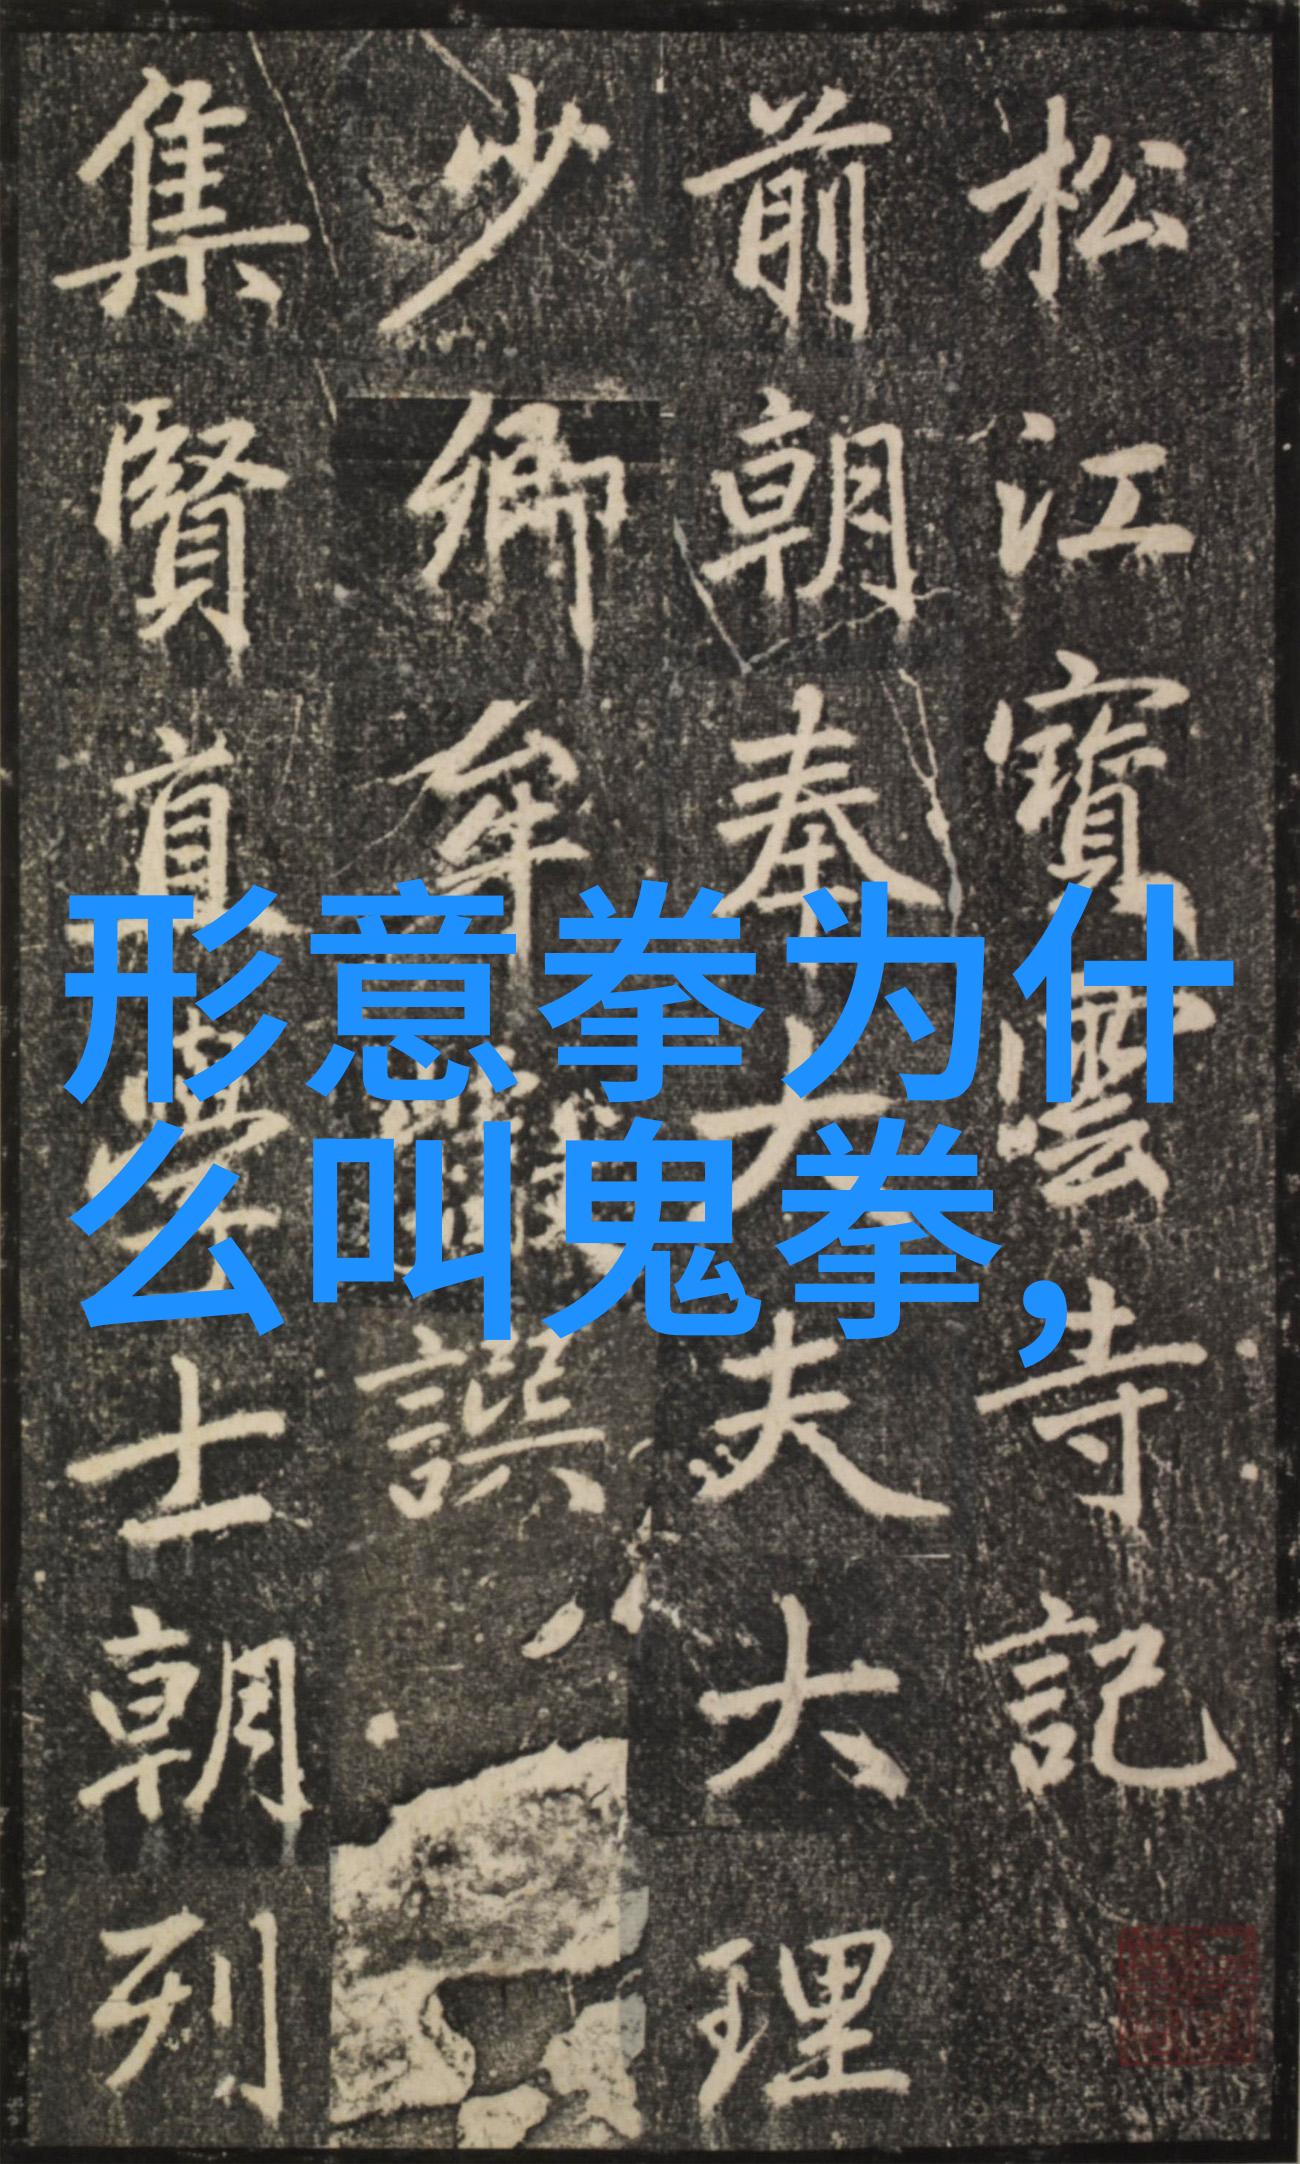 松江寶雲寺記
前朝奉大夫大理
少卿牟巘譔
集賢直學士朝列
形意拳为什
么叫鬼拳，